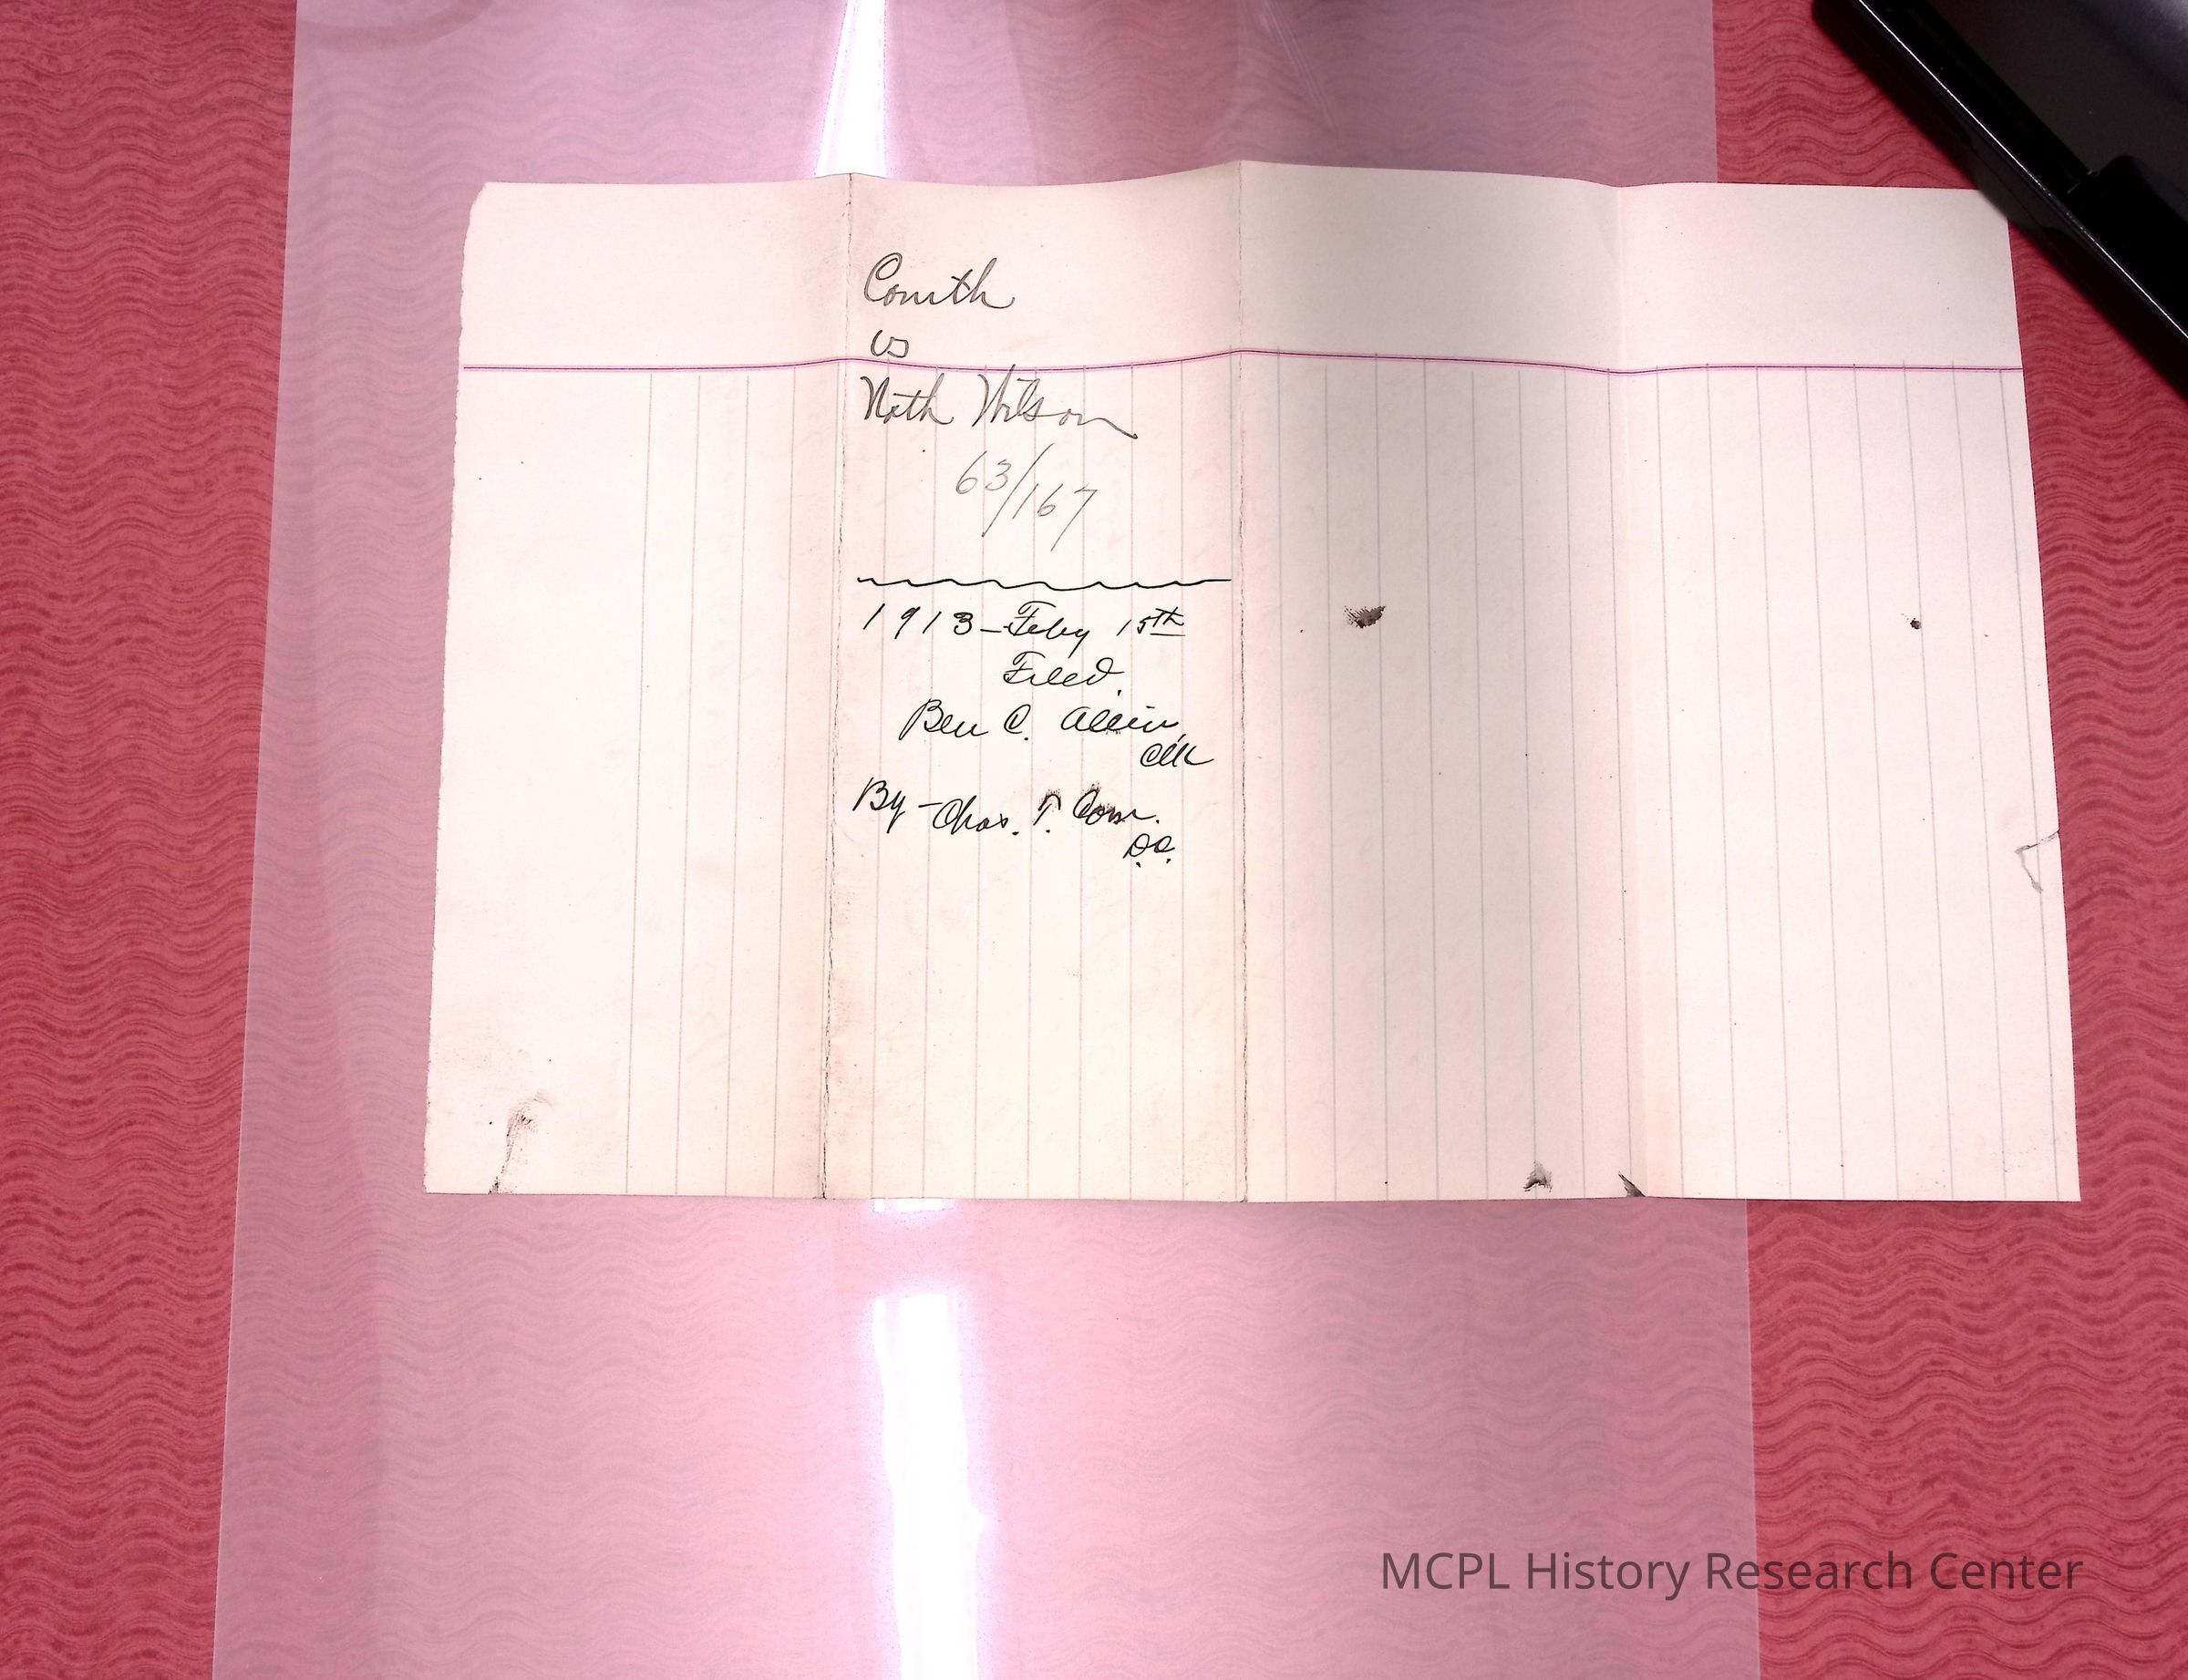 Comth
vs
Nath Wilson
63/167
1913-Feby 15th
Filed.
Ben C. Allin,
Clk
By-Chas. T. Corn.
D.C.
MCPL History Research Center